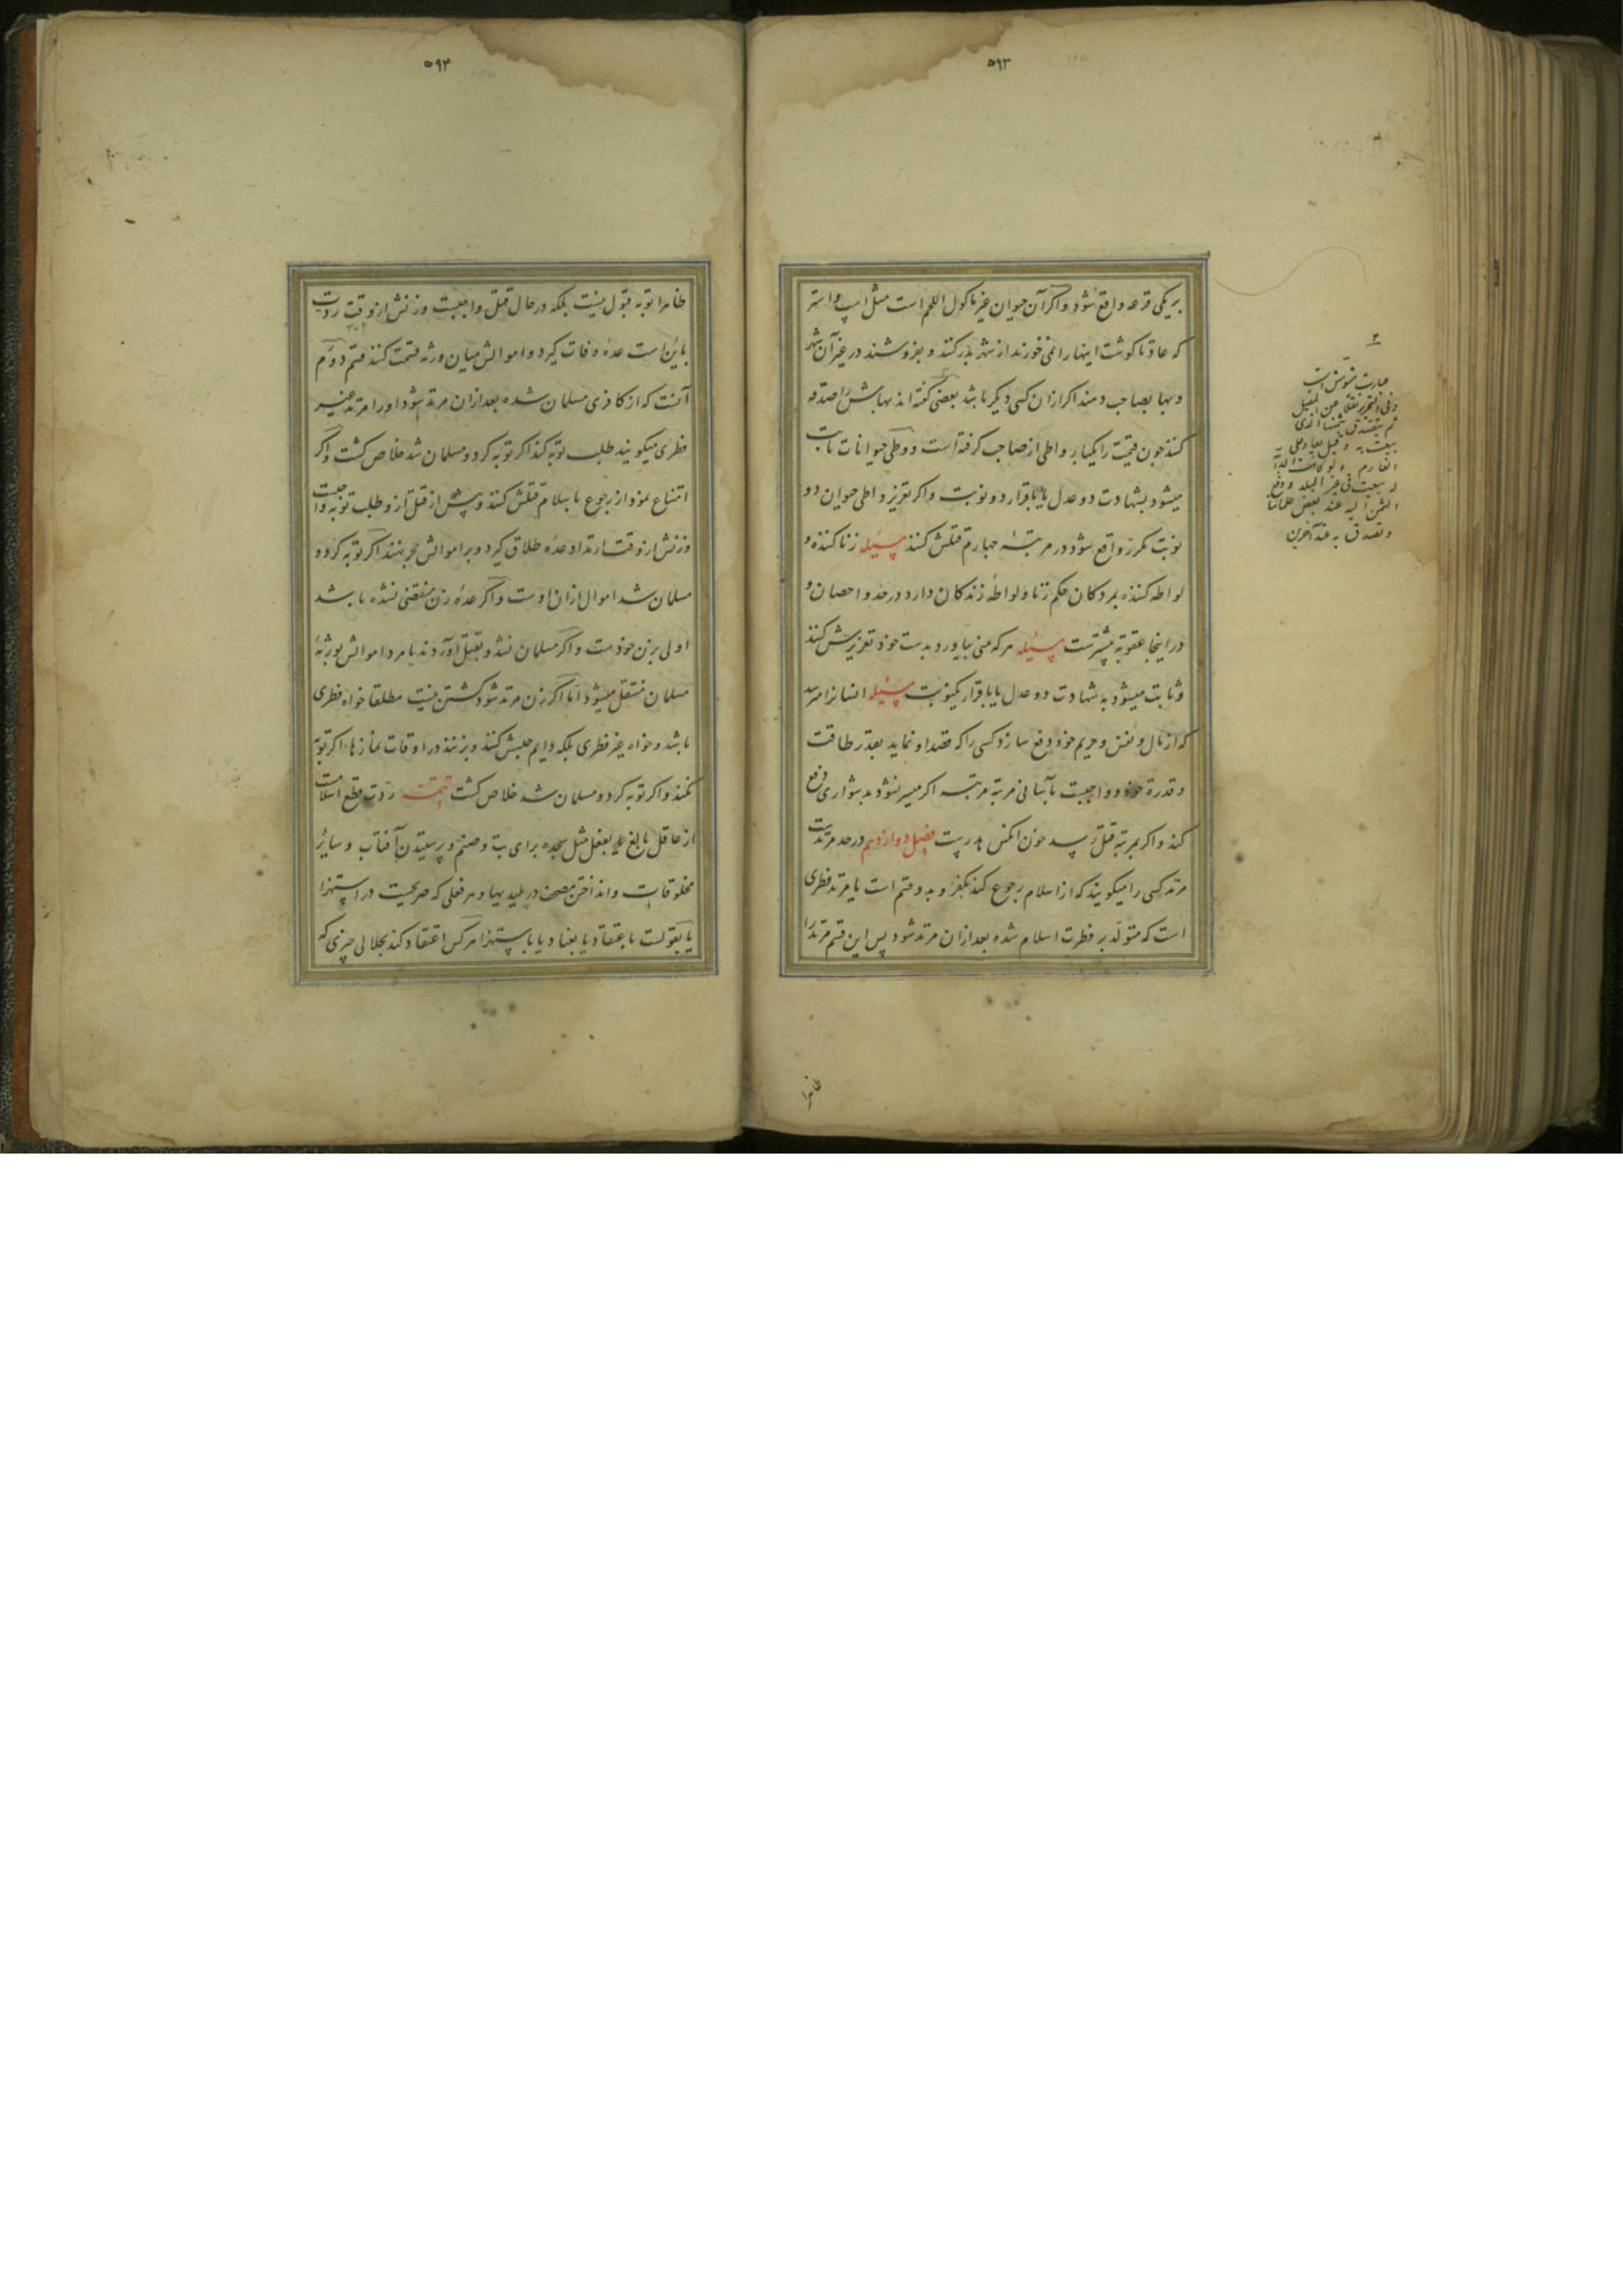 ۵۹۳
بریکی قرعه واقع شود واکر آن حیوان غیر ماکول اللحم است مثل اسپ و استر
که عادتا کوشت اینها را نمی خورند از شهر بدر کنند و بفروشند در غیر آن شهر
و بها بصاحب دهند اکر ازان کسی دیکر باشد بعضی کفته اند بهایش را صدقه
کنند چون قیمت را یکبار واطی از صاحب کرفته است و وطی حیوانات ثابت
میشود بشهادت دو عدل یا باقرار دو نوبت واکر تعزیر واطی حیوان دو
نوبت مکرر واقع شود در مرتبهٔ چهارم قتلش کنند مسئله زنا کننده و
لواطه کننده بمردکان حکم زنا و لواطهٔ زندکان دارد در حد و احصان و
در اینجا عقوبة بیشترست مسئله هر که منی بیاورد بدست خود تعزیرش کنند
و ثابت میشود به شهادت دو عدل یا باقرار یکنوبت مسئله انسانرا میرسد
که از مال و نفس و حریم خود دفع سازد کسی را که قصد او نماید بقدر طاقت
و قدرة خود و واجبست بآسانی مرتبه مرتبه اکر میسر نشود بدشواری دفع
کند واکر بمرتبهٔ قتل رسد خون آنکس هدرست فصل دوازدهم در حد مرتدست
مرتد کسی را میکویند که از اسلام رجوع کند بکفر و بدو قسم است یا مرتد فطری
است که متولد بر فطرت اسلام شده بعد ازان مرتد شود پس این قسم مرتد را
ظاهرا
۳
عبارت مشوش است
وفی التحریر نقلا عن
ثم یتصدق بثمنها الذی
بیعت به و قیل یعاد علی
الغارم ولو کانت الدابة
له بیعت فی غیر البلد و دفع
الثمن الیه عند بعض علمائنا
و تصدق به عند آخرین
۵۹۴
ظاهرا توبه قبول نیست بلکه در حال قتل واجبست و زنش از وقت ردت
باین است عدهٔ وفات کیرد و اموالش میان ورثه قسمت کنند قسم دوم
آنست که از کافری مسلمان شده بعد ازان مرتد شود او را مرتد غیر
فطری میکویند طلب توبه کنند اکر توبه کرد و مسلمان شد خلاص کشت واکر
امتناع نمود از رجوع باسلام قتلش کنند و پیش از قتل ازو طلب توبه واجبست
و زنش از وقت ارتداد عدهٔ طلاق کیرد و بر اموالش حجر بنهند اکر توبه کرد و
مسلمان شد اموال ازان اوست واکر عدهٔ زن منقضی نشده باشد
اولی بزن خودست واکر مسلمان نشد و بقتل آوردند یا مرد اموالش بورثهٔ
مسلمان منتقل میشود اما اکر زن مرتد شود کشتن نیست مطلقا خواه فطری
باشد و خواه غیر فطری بلکه دایم حبسش کنند و بزنند در اوقات نمازها اکر توبه
نکند واکر توبه کرد و مسلمان شد خلاص کشت تتمه ردت قطع اسلامست
از عاقل بالغ یا بفعل مثل سجده برای بت و صنم و پرستیدن آفتاب و سایر
مخلوقات و انداختن مصحف در پلیدیها و هر فعلی که صریحست در استهزا
یا بقولست باعتقاد یا بعناد یا باستهزا هر کس اعتقاد کند بحلالی چیزی که